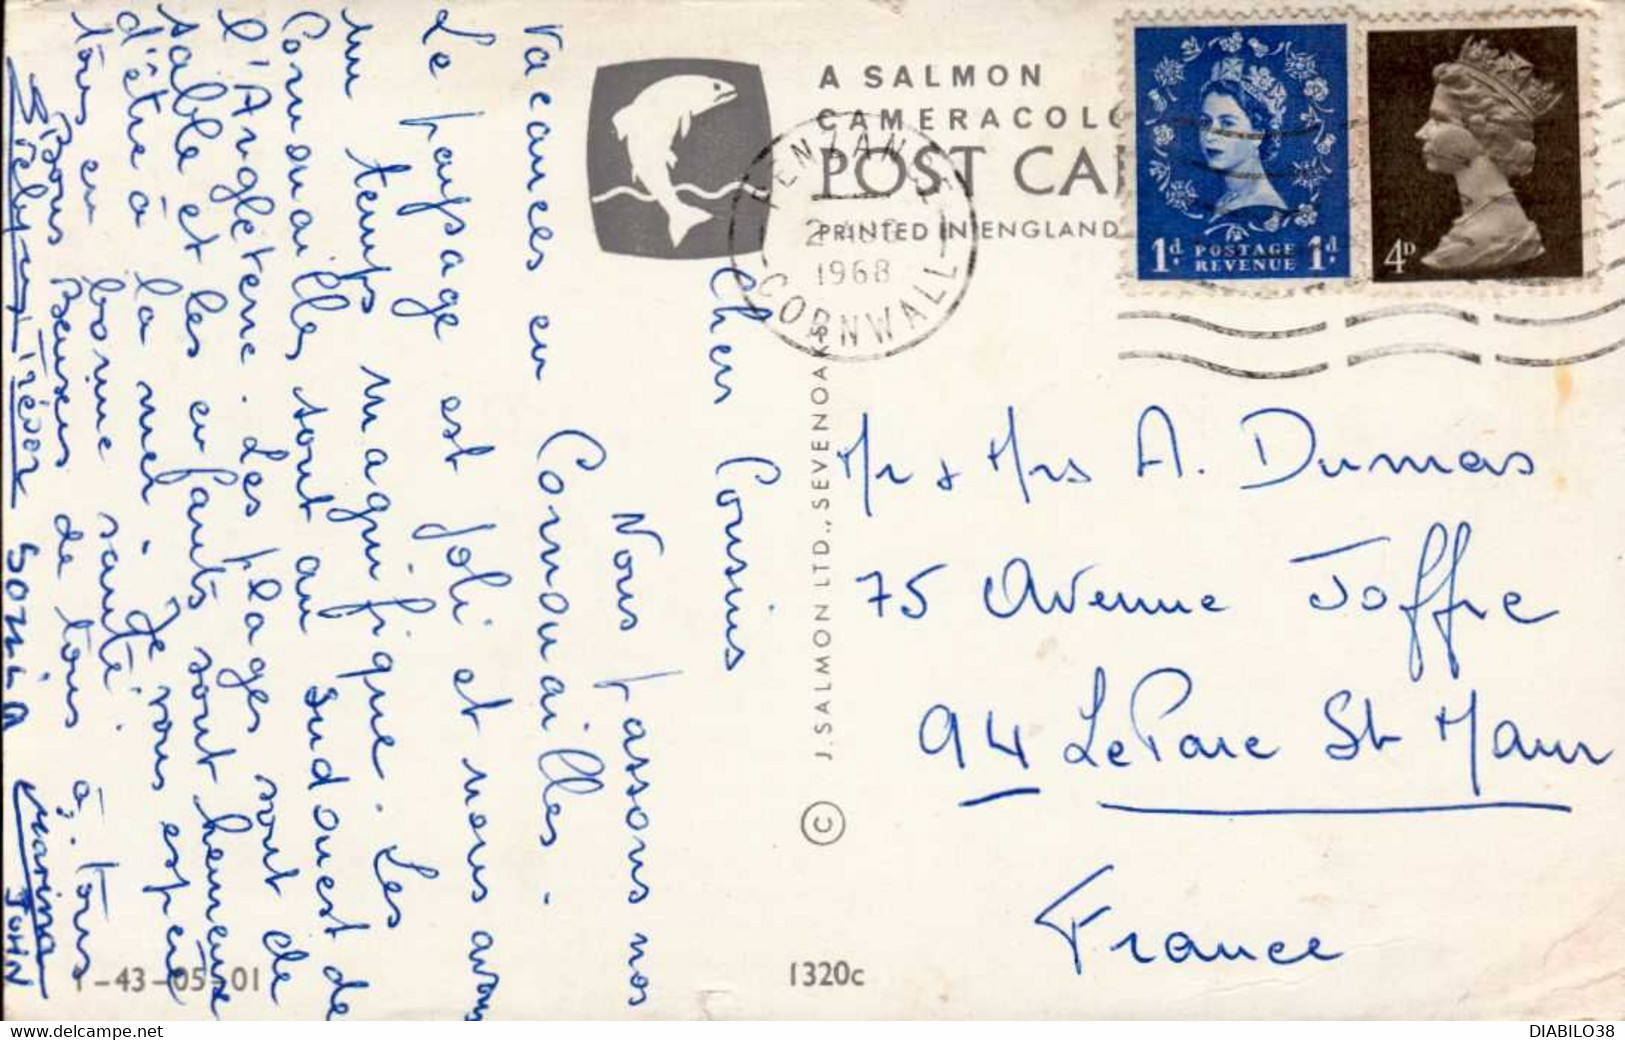 A SALMON
CAMERACOLO
POST CA
PRINTED IN ENGLAND
PENZANCE
1968
CORNWALL
1d. POSTAGE REVENUE 1d.
4D
Chers Cousins
Nous passons nos
vacances en Cornouailles.
Le paysage est joli et nous avons
un temps magnifique. Les
Cornouailles sont au sud ouest de
l'Angleterre. Les plages sont de
sable et les enfants sont heureux
d'être à la mer. Je vous espère
tous en bonne santé.
Bons Baisers de tous à tous
SONIA
Marina
JOHN
J. SALMON LTD., SEVENOAKS
©
Mr & Mrs A. Dumas
75 Avenue Joffre
94 Le Parc St Maur
France
1-43-05-01
1320c
www.delcampe.net
DIABILO38